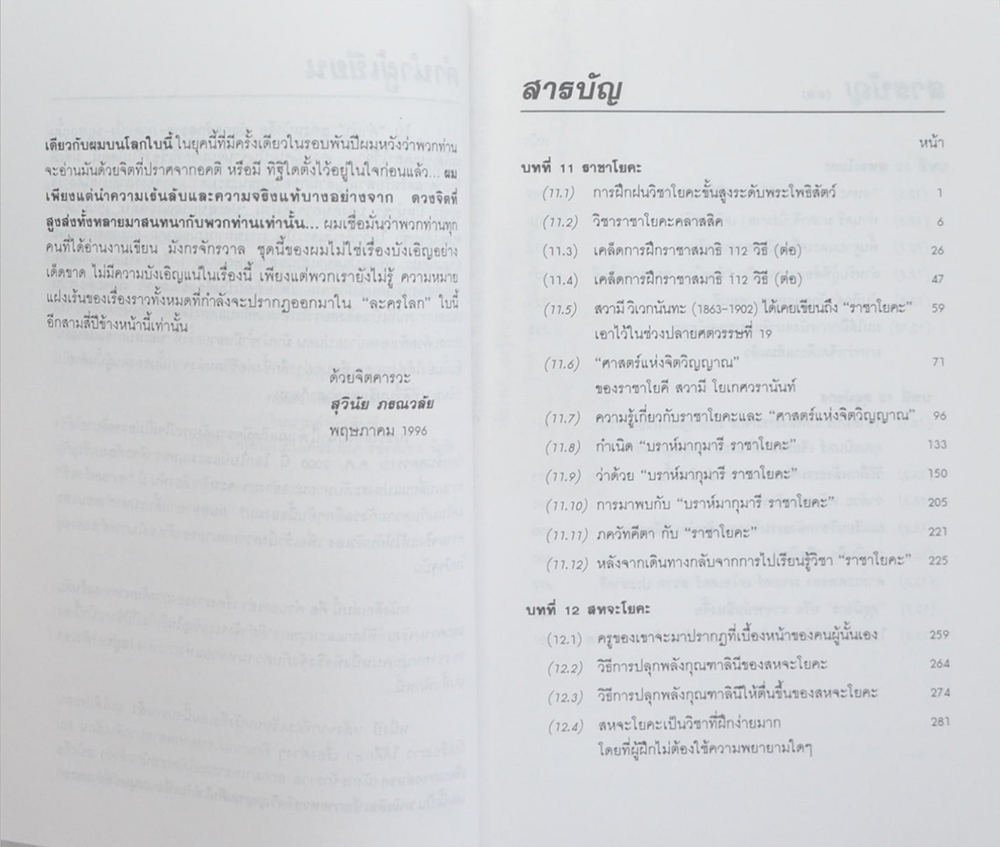 เดียวกับผมบนโลกใบนี้ ในยุคนี้ที่มีครั้งเดียวในรอบพันปีผมหวังว่าพวกท่าน
จะอ่านมันด้วยจิตที่ปราศจากอคติ หรือมี ทิฐิใดตั้งไว้อยู่ในใจก่อนแล้ว... ผม
เพียงแต่นำความเร้นลับและความจริงแท้บางอย่างจาก ดวงจิตที่
สูงส่งทั้งหลายมาสนทนากับพวกท่านเท่านั้น... ผมเชื่อมั่นว่าพวกท่านทุก
คนที่ได้อ่านงานเขียน มังกรจักรวาล ชุดนี้ของผมไม่ใช่เรื่องบังเอิญอย่าง
เด็ดขาด ไม่มีความบังเอิญแน่ในเรื่องนี้ เพียงแต่พวกเรายังไม่รู้ ความหมาย
แฝงเร้นของเรื่องราวทั้งหมดที่กำลังจะปรากฏออกมาใน “ละครโลก” ใบนี้
อีกสามสี่ปีข้างหน้านี้เท่านั้น
ด้วยจิตคารวะ
สุวินัย ภรณวลัย
พฤษภาคม 1996
สารบัญ
หน้า
บทที่ 11 ราชาโยคะ
(11.1) การฝึกฝนวิชาโยคะชั้นสูงระดับพระโพธิสัตว์ 1
(11.2) วิชาราชาโยคะคลาสสิค 6
(11.3) เคล็ดการฝึกราชาสมาธิ 112 วิธี (ต่อ) 26
(11.4) เคล็ดการฝึกราชาสมาธิ 112 วิธี (ต่อ) 47
(11.5) สวามี วิเวกนันทะ (1863-1902) ได้เคยเขียนถึง “ราชาโยคะ” 59
เอาไว้ในช่วงปลายศตวรรษที่ 19
(11.6) “ศาสตร์แห่งจิตวิญญาณ” 71
ของราชาโยคี สวามี โยเกศวรานันท์
(11.7) ความรู้เกี่ยวกับราชาโยคะและ “ศาสตร์แห่งจิตวิญญาณ” 96
(11.8) กำเนิด “บราห์มากุมารี ราชาโยคะ” 133
(11.9) ว่าด้วย “บราห์มากุมารี ราชาโยคะ” 150
(11.10) การมาพบกับ “บราห์มากุมารี ราชาโยคะ” 205
(11.11) ภควัทคีตา กับ “ราชาโยคะ” 221
(11.12) หลังจากเดินทางกลับจากการไปเรียนรู้วิชา “ราชาโยคะ” 225
บทที่ 12 สหจะโยคะ
(12.1) ครูของเขาจะมาปรากฏที่เบื้องหน้าของคนผู้นั้นเอง 259
(12.2) วิธีการปลุกพลังกุณฑาลินีของสหจะโยคะ 264
(12.3) วิธีการปลุกพลังกุณฑาลินีให้ตื่นขึ้นของสหจะโยคะ 274
(12.4) สหจะโยคะเป็นวิชาที่ฝึกง่ายมาก 281
โดยที่ผู้ฝึกไม่ต้องใช้ความพยายามใดๆ